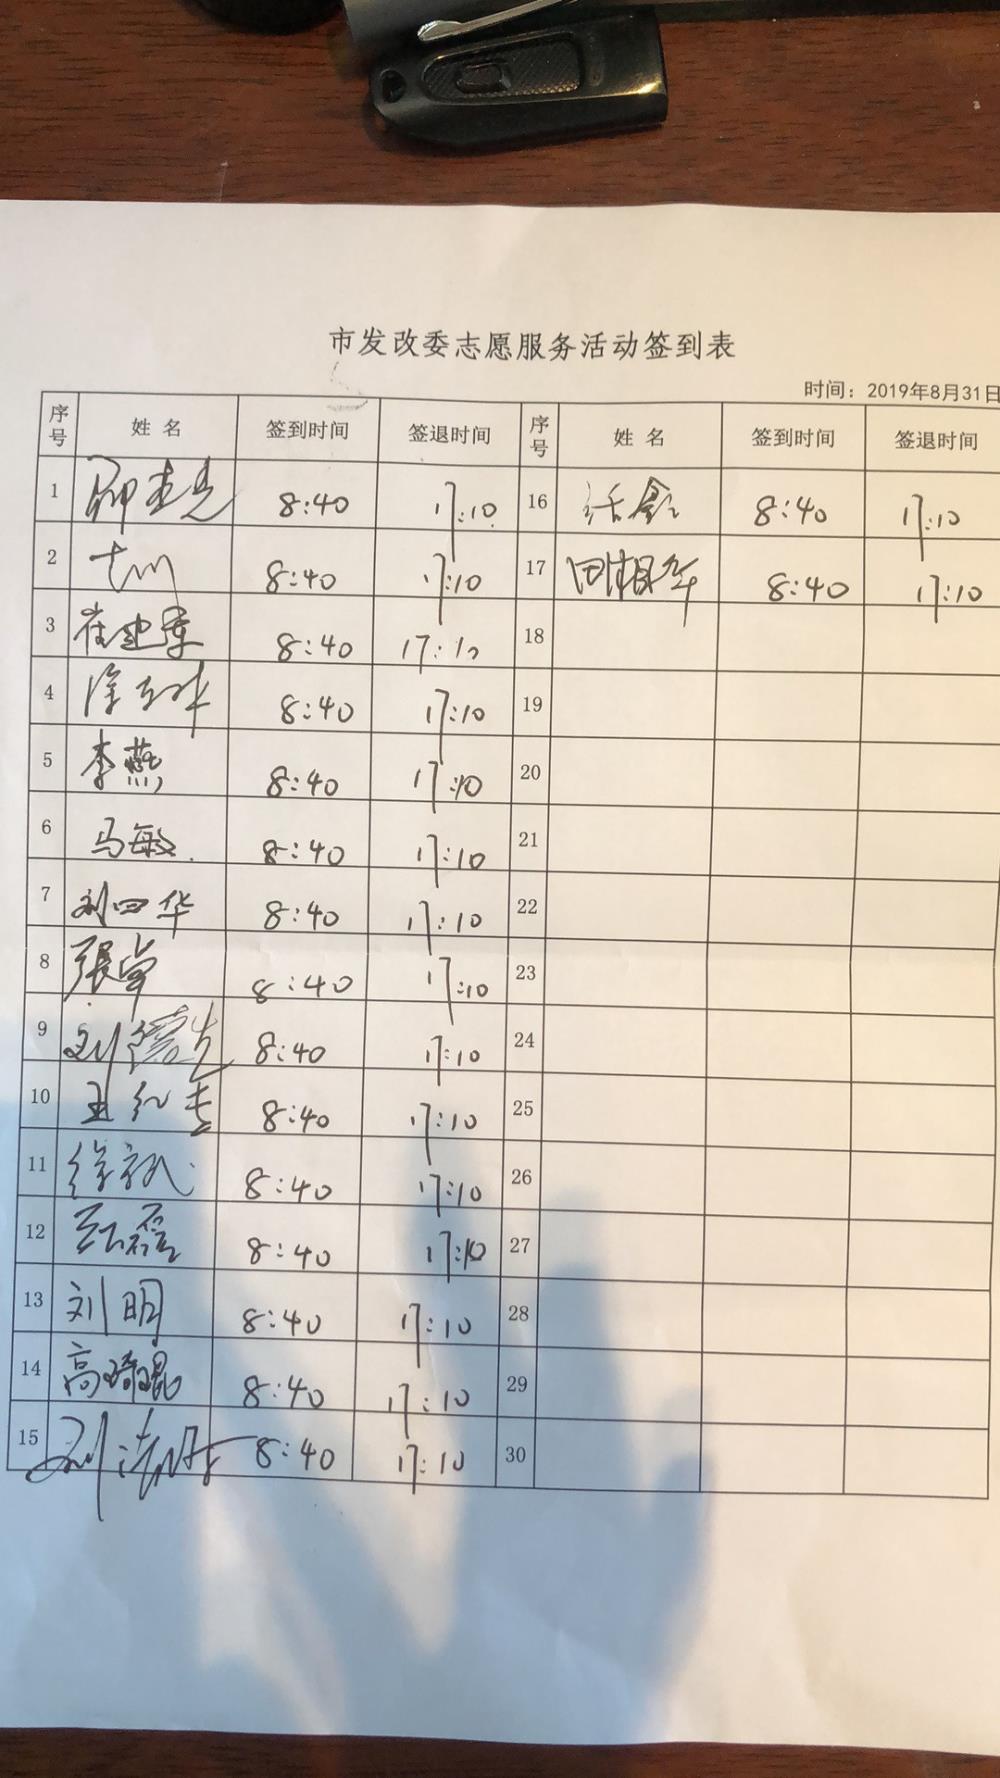 市发改委志愿服务活动签到表
时间：2019年8月31日
序号 姓名 签到时间 签退时间 序号 姓名 签到时间 签退时间
1 8:40 17:10 16 8:40 17:10
2 8:40 17:10 17 田湘华 8:40 17:10
3 崔建军 8:40 17:10 18
4 8:40 17:10 19
5 李燕 8:40 17:10 20
6 马敏 8:40 17:10 21
7 刘四华 8:40 17:10 22
8 8:40 17:10 23
9 8:40 17:10 24
10 8:40 17:10 25
11 8:40 17:10 26
12 8:40 17:10 27
13 刘明 8:40 17:10 28
14 高琦琨 8:40 17:10 29
15 8:40 17:10 30